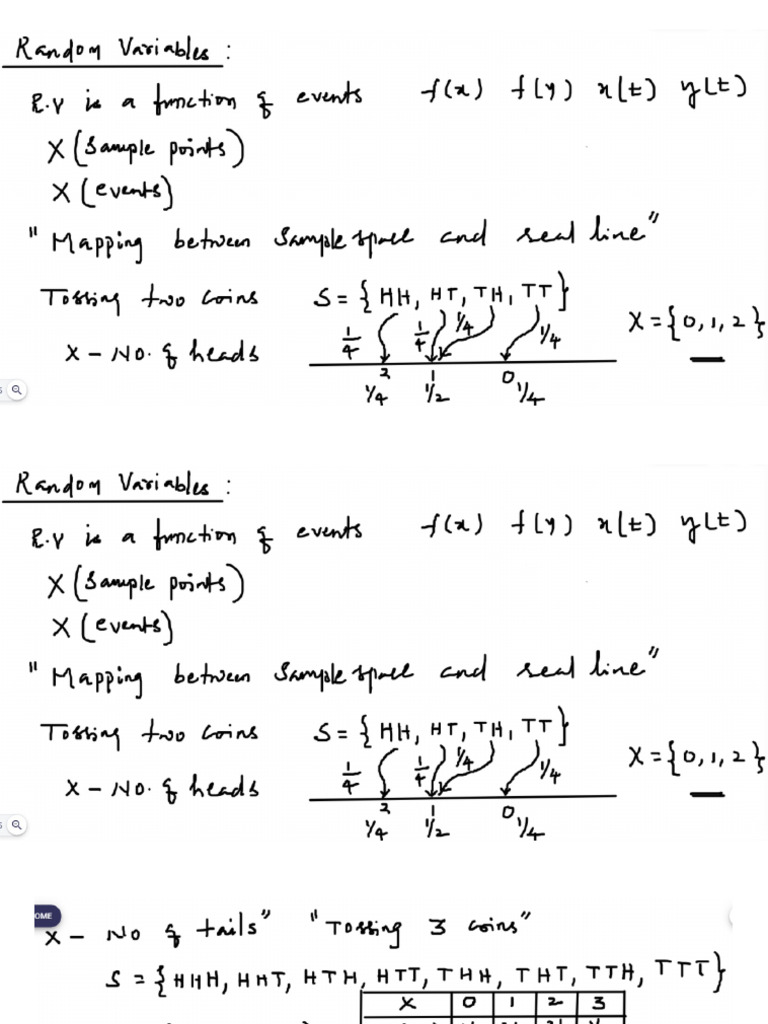 Random Variables :
R.V is a function of events f(x) f(y) x(t) y(t)
X (Sample points)
X (events)
" Mapping between Sample space and real line "
Tossing two coins S = { HH, HT, TH, TT }
1/4 1/4 1/4 1/4 X = {0, 1, 2}
X – No. of heads
2 1 0
1/4 1/2 1/4
Random Variables :
R.V is a function of events f(x) f(y) x(t) y(t)
X (Sample points)
X (events)
" Mapping between Sample space and real line "
Tossing two coins S = { HH, HT, TH, TT }
1/4 1/4 1/4 1/4 X = {0, 1, 2}
X – No. of heads
2 1 0
1/4 1/2 1/4
OME
X – No of tails" "Tossing 3 coins"
S = {HHH, HHT, HTH, HTT, THH, THT, TTH, TTT}
X 0 1 2 3